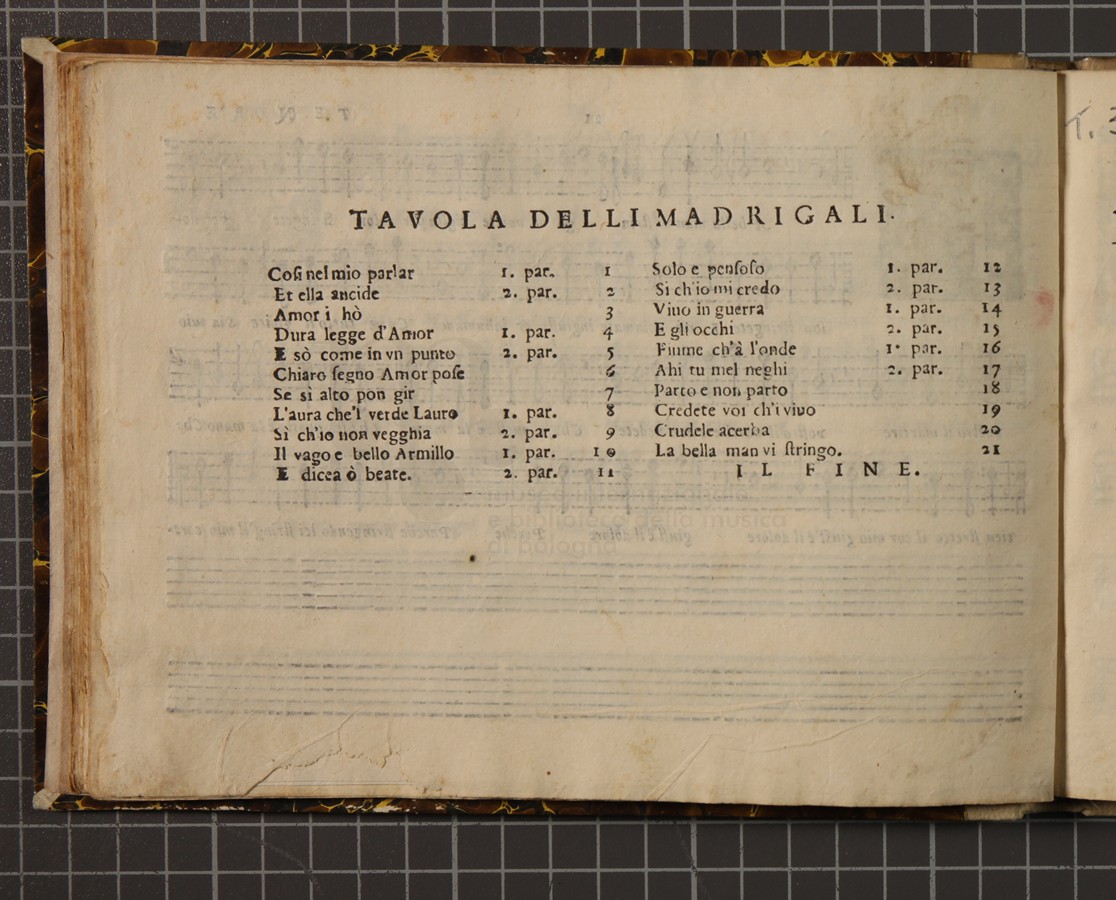 TAVOLA DELLI MADRIGALI.
Coſi nel mio parlar 1. par. 1
Et ella ancide 2. par. 2
Amor i hò 3
Dura legge d'Amor 1. par. 4
E sò come in vn punto 2. par. 5
Chiaro ſegno Amor poſe 6
Se sì alto pon gir 7
L'aura che'l verde Lauro 1. par. 8
Sì ch'io non vegghia 2. par. 9
Il vago e bello Armillo 1. par. 10
E dicea ò beate. 2. par. 11
Solo e penſoſo 1. par. 12
Si ch'io mi credo 2. par. 13
Viuo in guerra 1. par. 14
E gli occhi 2. par. 15
Fiume ch'à l'onde 1. par. 16
Ahi tu mel neghi 2. par. 17
Parto e non parto 18
Credete voi ch'i viuo 19
Crudele acerba 20
La bella man vi ſtringo. 21
IL FINE.
e biblioteca della musica
di bologna